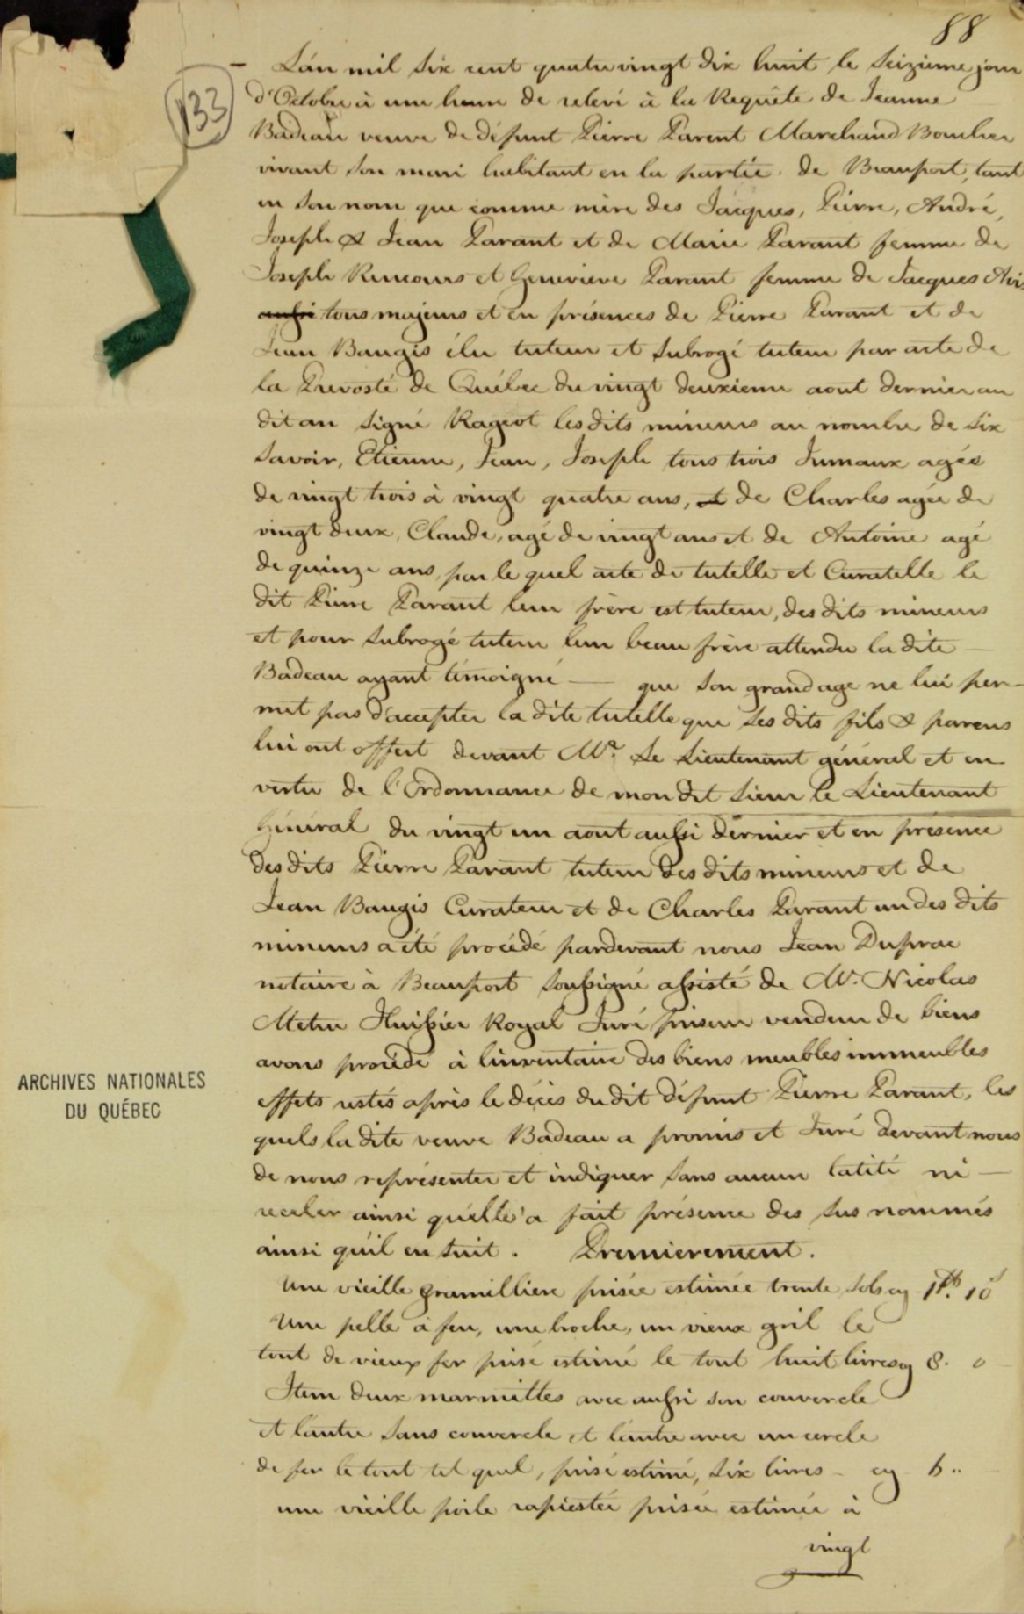 88
133
L'an mil six cent quatre vingt dix huit le Seizieme jour
d'Octobre à une heure de relevé à la Requête de Jeanne
Badeau veuve de défunt Pierre Parent Marchand Boucher
vivant son mari habitant en la partie de Beauport, tant
en son nom que comme mère des Jacques, Pierre, André,
Joseph & Jean Parant et de Marie Parant femme de
Joseph Rancours et Genevieve Parant femme de Jacques
aussi tous majeurs et en présences de Pierre Parant et de
Jean Baugis élu tuteur et subrogé tuteur par acte de
la Prevosté de Québec du vingt deuxieme aout dernier au
dit an signé Rageot les dits mineurs au nombre de six
Savoir, Etienne, Jean, Joseph tous trois Jumaux agés
de vingt trois à vingt quatre ans, et de Charles agée de
vingt deux, Claude, agé de vingt ans et de Antoine agé
de quinze ans, par le quel acte de tutelle et Curatelle le
dit Pierre Parant leur frère est tuteur, des dits mineurs
et pour subrogé tuteur leur beau frère attendu la dite
Badeau ayant témoigné — que son grand age ne lui per-
met pas d'accepter la dite tutelle que ses dits fils & parens
lui ont offert devant Mr. Le Lieutenant général et en
vertu de l'Ordonnance de mon dit Sieur le Lieutenant
Général du vingt un aout aussi dernier et en présence
des dits Pierre Parant tuteur des dits mineurs et de
Jean Baugis Curateur et de Charles Parant un des dits
mineurs a été procédé pardevant nous Jean Duprac
notaire à Beauport soussigné assisté de Mr. Nicolas
Metru Huissier Royal Juré priseur vendeur de biens
avons procédé à l'inventaire des biens meubles immeubles
effets restés après le décès du dit défunt Pierre Parant, les
quels la dite veuve Badeau a promis et Juré devant nous
de nous représenter et indiquer sans aucun latité ni —
receler ainsi qu'elle a fait présence des sus nommés
ainsi qu'il en suit. Premierement.
Une vieille gramilliere prisée estimée trente sols cy 1tt. 10s
Une pelle à feu, une broche, un vieux gril le
tout de vieux fer prisé estimé le tout huit livres cy 8. 0
Item deux marmittes avec aussi son couvercle
et l'autre sans couvercle et l'autre avec un cercle
de fer le tout tel quel, prisé estimé, six livres - cy 6 ..
une vieille poile rapiestée prisée estimée à
vingt
ARCHIVES NATIONALES
DU QUÉBEC